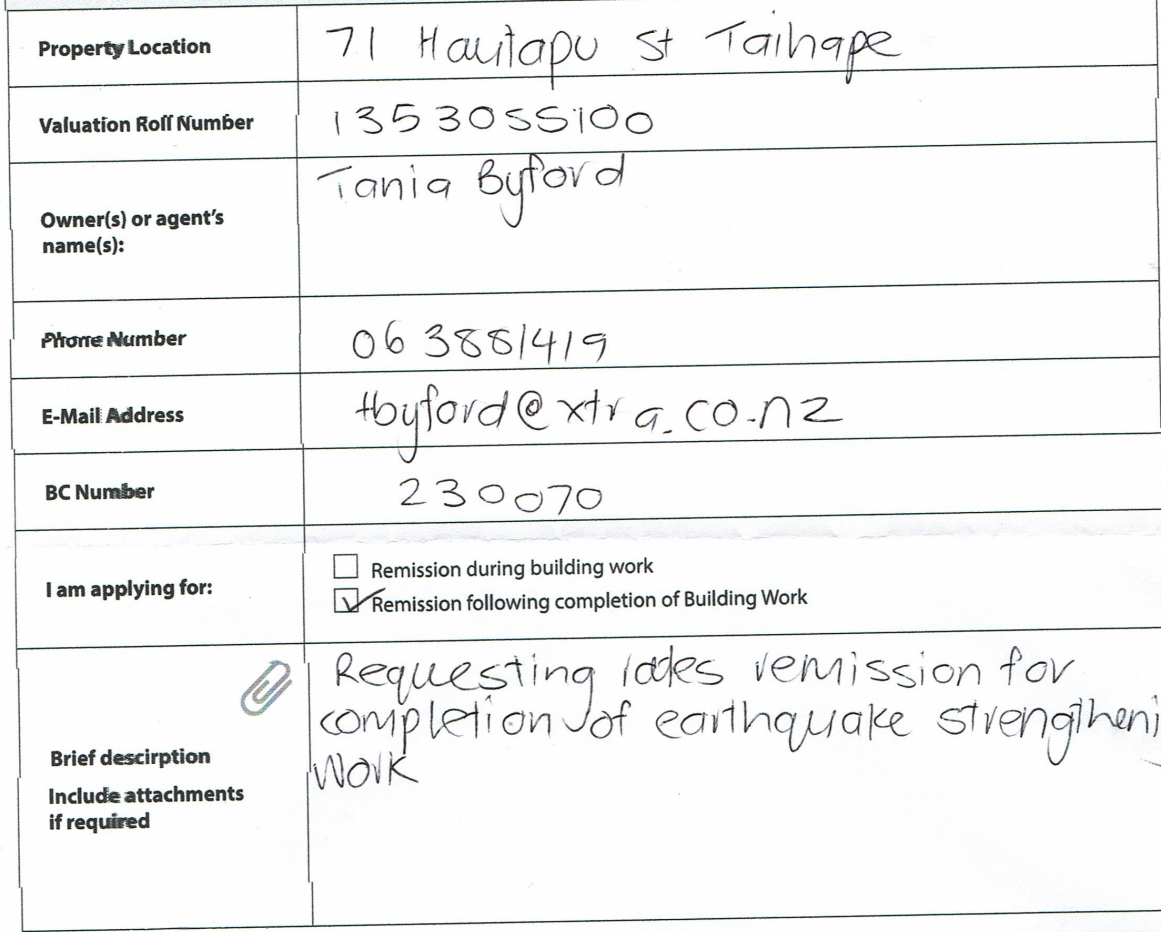 Property Location
71 Hautapu St Taihape
Valuation Roll Number
1353055100
Owner(s) or agent's
name(s):
Tania Byford
Phone Number
06 3881419
E-Mail Address
tbyford@xtra.co.nz
BC Number
230070
I am applying for:
Remission during building work
Remission following completion of Building Work
Brief descirption
Include attachments
if required
Requesting rates remission for
completion of earthquake strengtheni
Work